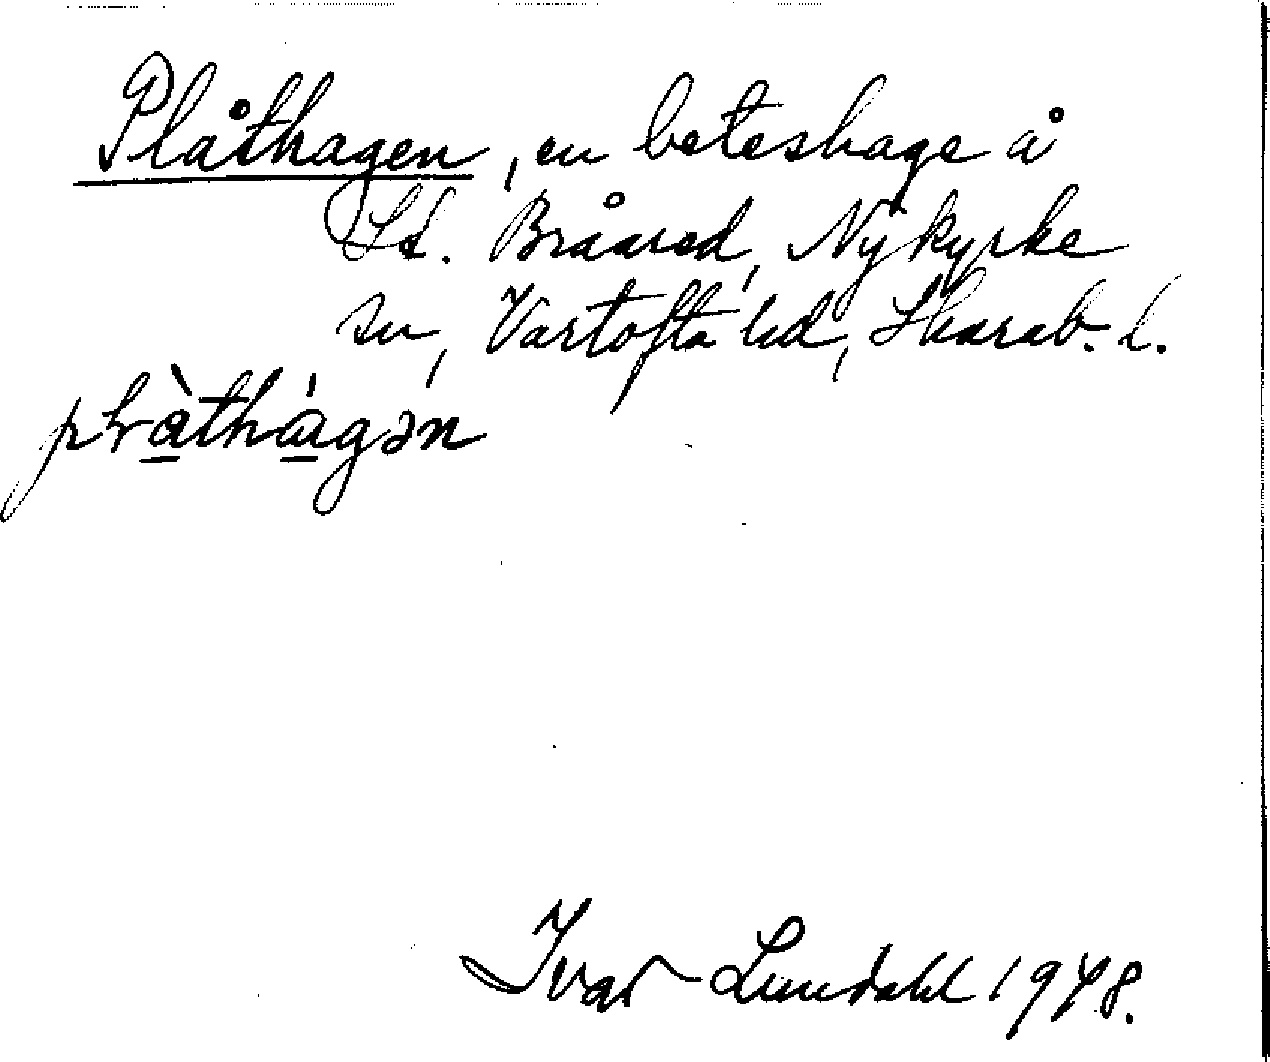 Plåthagen, en beteshage å
St. Bråared, Nykyrke
sn, Vartofta hd, Skarab. l.
plråthàgən
Ivar Lundahl 1948.